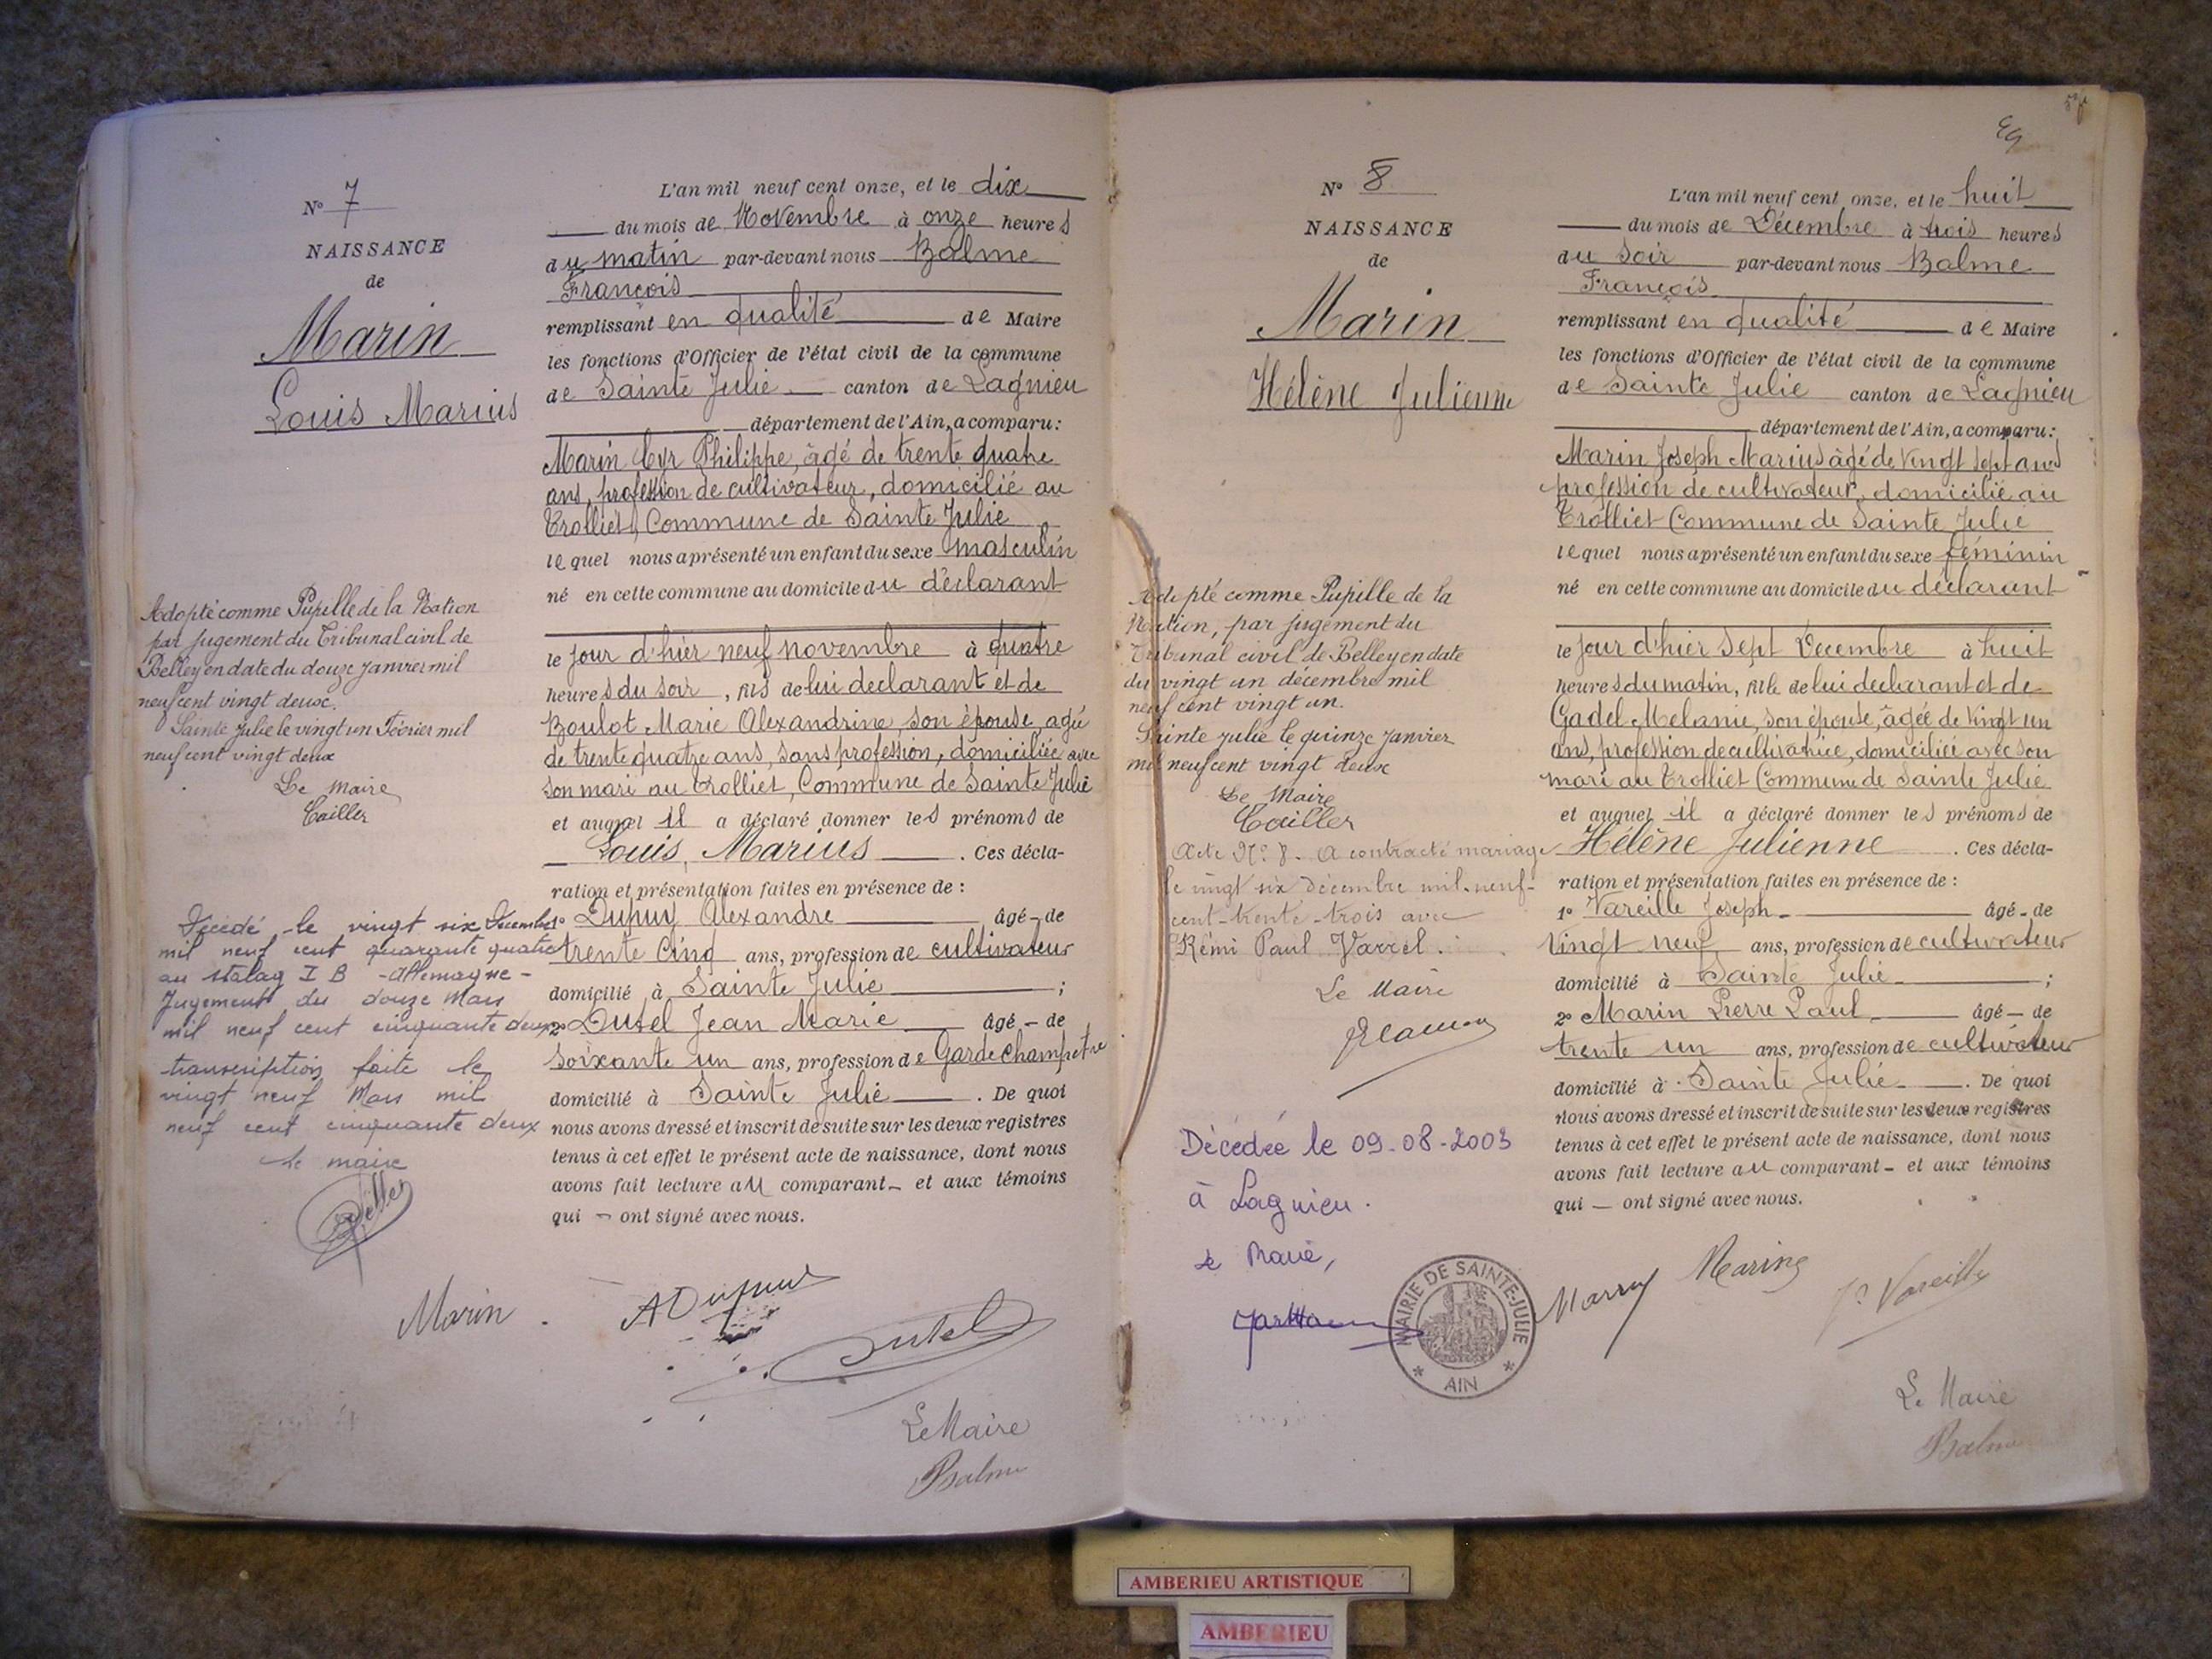 N° 7
NAISSANCE
de
Marin
Louis Marius
Adopté comme Pupille de la Nation
par jugement du Tribunal civil de
Belley en date du douze janvier mil
neuf cent vingt deux.
Sainte Julie le vingt un Février mil
neuf cent vingt deux
Le Maire
Cailler
Décédé le vingt six Décembre
mil neuf cent quarante quatre
au stalag I B - Allemagne -
Jugement du douze Mars
mil neuf cent cinquante deux
transcription faite le
vingt neuf Mars mil
neuf cent cinquante deux
le maire
L'an mil neuf cent onze, et le dix
du mois de Novembre à onze heures
du matin par-devant nous Balme
François
remplissant en qualité de Maire
les fonctions d'Officier de l'état civil de la commune
de Sainte Julie canton de Lagnieu
département de l'Ain, a comparu :
Marin Cyr Philippe, âgé de trente quatre
ans, profession de cultivateur, domicilié au
Trolliet, Commune de Sainte Julie
lequel nous a présenté un enfant du sexe masculin
né en cette commune au domicile du déclarant
le jour d'hier neuf novembre à quatre
heures du soir, fils de lui déclarant et de
Boulot Marie Alexandrine, son épouse, agée
de trente quatre ans, sans profession, domiciliée avec
son mari au Trolliet, Commune de Sainte Julie
et auquel il a déclaré donner les prénoms de
Louis, Marius . Ces décla-
ration et présentation faites en présence de :
1° Dupuy Alexandre âgé - de
trente cinq ans, profession de cultivateur
domicilié à Sainte Julie ;
2° Dutel Jean Marie âgé - de
soixante un ans, profession de Garde champetre
domicilié à Sainte Julie . De quoi
nous avons dressé et inscrit de suite sur les deux registres
tenus à cet effet le présent acte de naissance, dont nous
avons fait lecture au comparant - et aux témoins
qui - ont signé avec nous.
Marin
A Dupuy
Dutel
Le Maire
Balme
49
N° 8
NAISSANCE
de
Marin
Hélène Julienne
Adopté comme Pupille de la
Nation, par jugement du
Tribunal civil de Belley en date
du vingt un décembre mil
neuf cent vingt un.
Sainte Julie le quinze janvier
mil neuf cent vingt deux
Le Maire
Cailler
Acte N° 8. A contracté mariage
le vingt six décembre mil-neuf-
cent-trente-trois avec
Rémi Paul Varrel.
Le Maire
Décédée le 09-08-2003
à Lagnieu.
le Maire,
MAIRIE DE SAINTE-JULIE
* AIN *
L'an mil neuf cent onze, et le huit
du mois de Décembre à trois heures
du soir par-devant nous Balme
François
remplissant en qualité de Maire
les fonctions d'Officier de l'état civil de la commune
de Sainte Julie canton de Lagnieu
département de l'Ain, a comparu :
Marin Joseph Marius âgé de vingt sept ans
profession de cultivateur, domicilié au
Trolliet Commune de Sainte Julie
lequel nous a présenté un enfant du sexe féminin
né en cette commune au domicile du déclarant
le jour d'hier sept Décembre à huit
heures du matin, fille de lui déclarant et de
Gadel Melanie, son épouse, âgée de vingt un
ans, profession de cultivatrice, domiciliée avec son
mari au Trolliet Commune de Sainte Julie
et auquel il a déclaré donner les prénoms de
Hélène Julienne . Ces décla-
ration et présentation faites en présence de :
1° Vareille Joseph - âgé - de
vingt neuf ans, profession de cultivateur
domicilié à Sainte Julie ;
2° Marin Pierre Paul âgé - de
trente un ans, profession de cultivateur
domicilié à Sainte Julie . De quoi
nous avons dressé et inscrit de suite sur les deux registres
tenus à cet effet le présent acte de naissance, dont nous
avons fait lecture au comparant - et aux témoins
qui - ont signé avec nous.
Vareille
Le Maire
Balme
AMBERIEU ARTISTIQUE
AMBERIEU